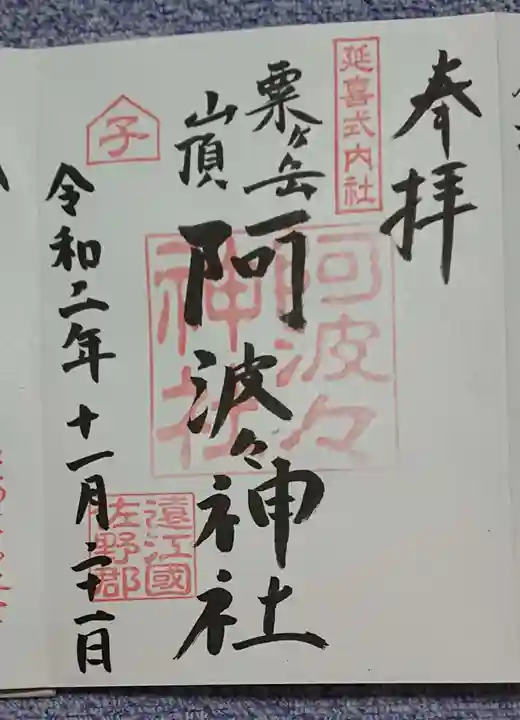 奉拝
延喜式内社
粟ヶ岳
山頂
阿波々神社
阿波々
神社
遠江國
佐野郡
子
令和二年十一月二十一日